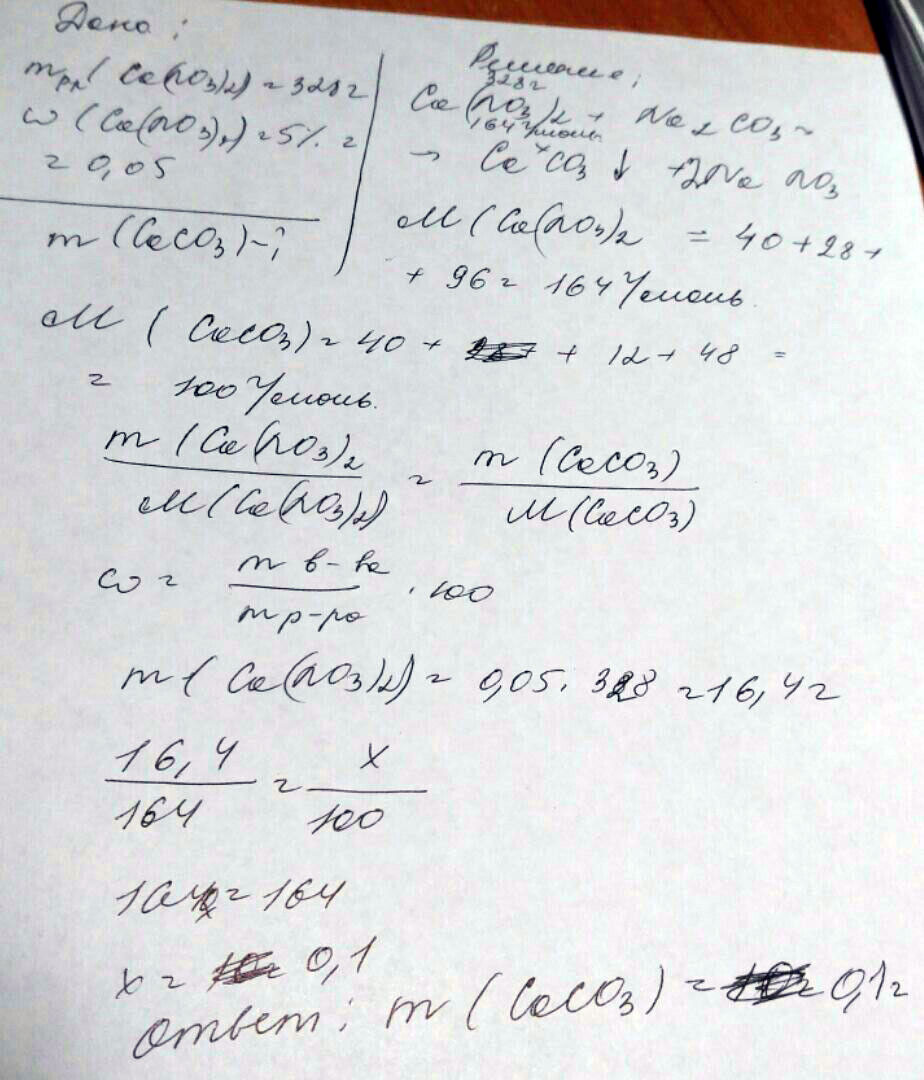 Дано:
mрр( Ca(NO3)2) = 328 г
ω (Ca(NO3)2) = 5% =
= 0,05
m (CaCO3) - ?
Решение:
328 г
Ca(NO3)2 + Na2CO3 =
164 г/моль x
→ CaCO3 ↓ + 2NaNO3
M (Ca(NO3)2 = 40 + 28 +
+ 96 = 164 г/моль.
M ( CaCO3) = 40 + + 12 + 48 =
= 100 г/моль.
m (Ca(NO3)2 / M (Ca(NO3)2) = m (CaCO3) / M (CaCO3)
ω = m в-ва / m р-ра · 100
m ( Ca(NO3)2) = 0,05 · 328 = 16,4 г
16,4 / 164 = x / 100
164x = 164
x = 0,1
Ответ: m ( CaCO3) = 0,1 г